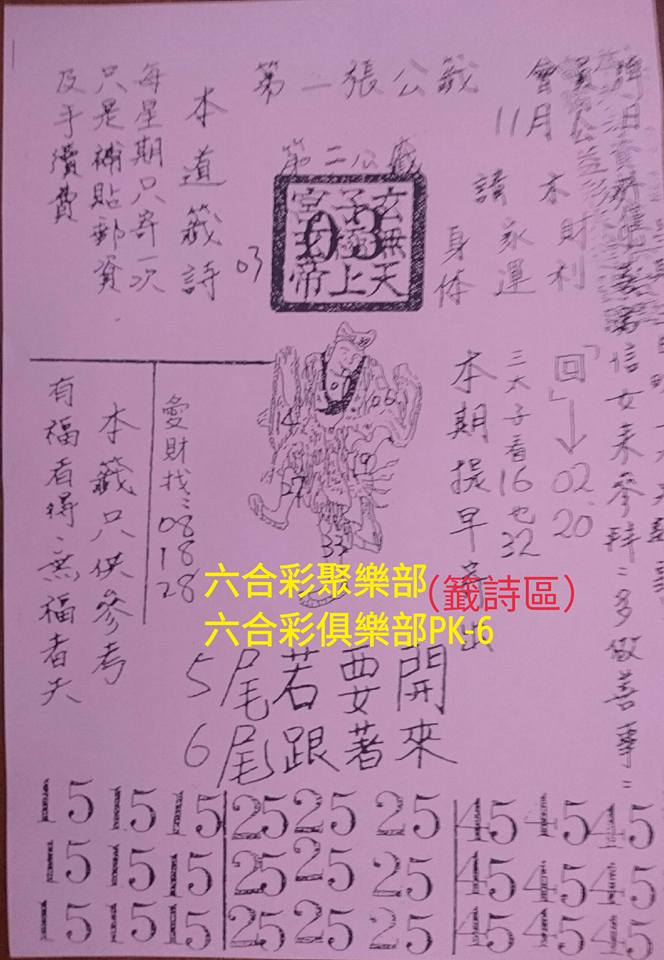 第一張公籤
會員
11月公益
請
本財利
家運
身体
第二公籤
玄無天
子極上
宮玄帝
03
03
本道籤詩
每星期只寄一次
只是補貼郵資
及手續費
信女來參拜：多做善事：
「回」→02.20
三太子看16也32
本期提早寄出
14
06
19
27
33
愛財找：08
18
28
本籤只供參考
有福者得、無福者失
六合彩聚樂部
(籤詩區)
六合彩俱樂部PK-6
5尾若要開
6尾跟著來
15 15 15 25 25 25 45 45 45
15 15 15 25 25 25 45 45 45
15 15 15 25 25 25 45 45 45